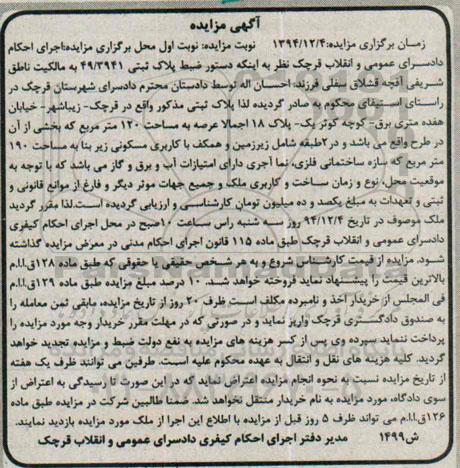 آگهی مزایده
زمان برگزاری مزایده:۱۳۹۴/۱۲/۴ نوبت مزایده: نوبت اول محل برگزاری مزایده:اجرای احکام
دادسرای عمومی و انقلاب قرچک نظر به اینکه دستور ضبط پلاک ثبتی ۴۹/۳۹۴۱ به مالکیت ناطق
شریفی آقچه قشلاق سفلی فرزند: احسان اله توسط دادستان محترم دادسرای شهرستان قرچک در
راستای استیفای محکوم به صادر گردیده لذا پلاک ثبتی مذکور واقع در قرچک- زیباشهر- خیابان
هفده متری برق- کوچه کوثر یک- پلاک ۱۸ اجمالا عرصه به مساحت ۱۲۰ متر مربع که بخشی از آن
در طرح واقع می باشد و در ۲طبقه شامل زیرزمین و همکف با کاربری مسکونی زیر بنا به مساحت ۱۹۰
متر مربع که سازه ساختمانی فلزی، نما آجری دارای امتیازات آب و برق و گاز می باشد که با توجه به
موقعیت محل، نوع و زمان ساخت و کاربری ملک و جمیع جهات موثر دیگر و فارغ از موانع قانونی و
ثبتی و تعهدات به مبلغ یکصد و ده میلیون تومان کارشناسی و ارزیابی گردیده است.لذا مقرر گردید
ملک موصوف در تاریخ ۹۴/۱۲/۴ روز سه شنبه راس ساعت ۱۰صبح در محل اجرای احکام کیفری
دادسرای عمومی و انقلاب قرچک طبق ماده ۱۱۵ قانون اجرای احکام مدنی در معرض مزایده گذاشته
شود. مزایده از قیمت کارشناس شروع و به هر شخص حقیقی یا حقوقی که طبق ماده ۱۲۸ق.ا.ا.م
بالاترین قیمت را پیشنهاد نماید فروخته خواهد شد. ۱۰ درصد مبلغ مزایده طبق ماده ۱۲۹ق.ا.ا.م
فی المجلس از خریدار اخذ و نامبرده مکلف است ظرف ۲۰ روز از تاریخ مزایده، مابقی ثمن معامله را
به صندوق دادگستری قرچک واریز نماید و در صورتی که در مهلت مقرر خریدار وجه مورد مزایده را
پرداخت ننماید سپرده وی پس از کسر هزینه های مزایده به نفع دولت ضبط و مزایده تجدید خواهد
گردید. کلیه هزینه های نقل و انتقال به عهده محکوم علیه است. طرفین می توانند ظرف یک هفته
از تاریخ مزایده نسبت به نحوه انجام مزایده اعتراض نماید که در این صورت تا رسیدگی به اعتراض از
سوی دادگاه، مورد مزایده به نام خریدار منتقل نخواهد شد. ضمنا طالبین شرکت در مزایده طبق ماده
۱۲۶ق.ا.ا.م می تواند ظرف ۵ روز قبل از مزایده با اطلاع این اجرا از ملک مورد مزایده بازدید نمایند.
ش۱۴۹۹ مدیر دفتر اجرای احکام کیفری دادسرای عمومی و انقلاب قرچک